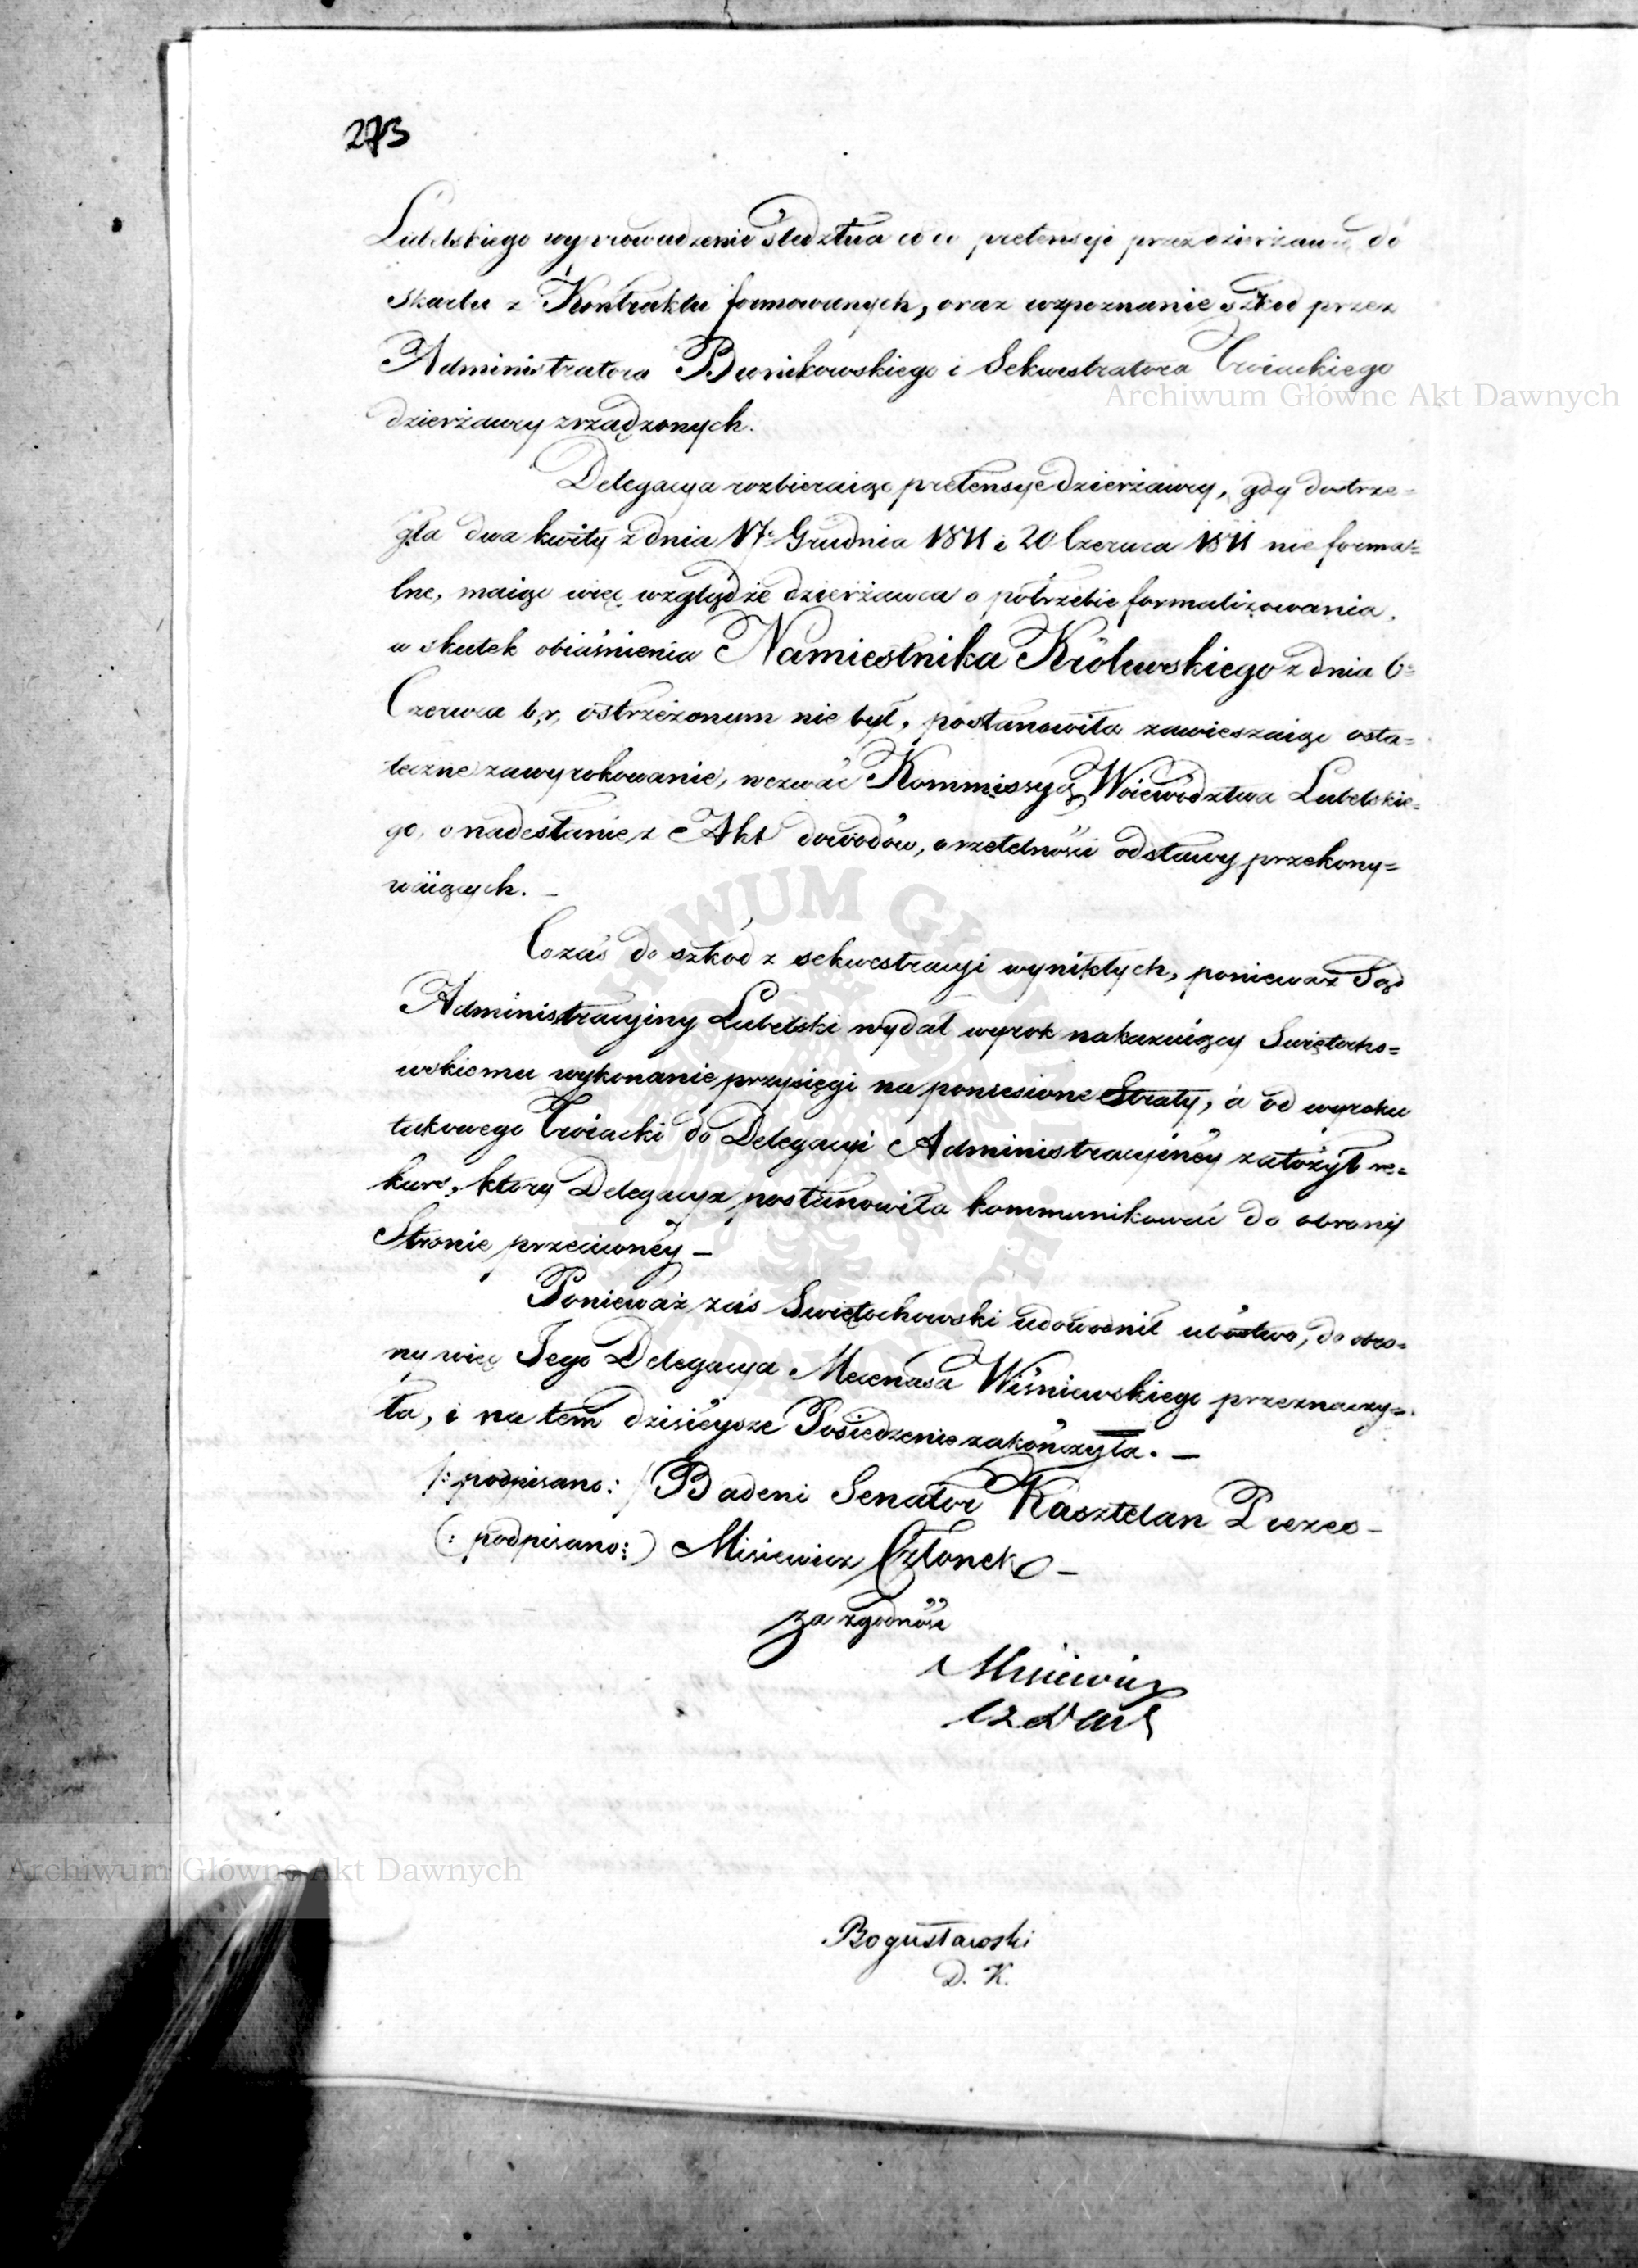 273
Lubelskiego wyprowadzenie śledztwa co do pretensyi przez dzierżawcę do
Skarbu z Kontraktu formowanych, oraz rozpoznanie szkod przez
Administratora i Sekwestratora
Archiwum Główne Akt Dawnych
dzierżawcy zrządzonych.
Delegacya rozbieraiąc pretensye dzierżawcy, gdy dostrze=
gła dwa kwity z dnia 17 Grudnia 1811 i 20 Czerwca 1811 nie forma=
lne, maiąc więc wzgląd że dzierżawca o potrzebie formalizowania,
w skutek obiaśnienia Namiestnika Królewskiego z dnia 6
Czerwca b,r, ostrzeżonym nie był, postanowiła zawieszaiąc osta=
teczne zawyrokowanie, wezwać Kommissyą Woiewództwa Lubelskie=
go, o nadesłanie z Akt dowodów, o rzetelności odstawy przekony=
waiących. —
Co zaś do szkód z sekwestracyi wynikłych, ponieważ Sąd
Administracyiny Lubelski wydał wyrok nakazuiący Swiętocho=
wskiemu wykonanie przysięgi na poniesione Straty, a od wyroku
takowego do Delegacyi Administracyiney założył re=
kurs, ktory Delegacya postanowiła kommunikować do obrony
Stronie przeciwney —
Ponieważ zaś Swiętochowski udowodnił ubóstwo, do obro=
ny więc Jego Delegacya Mecenasa Wiśniewskiego przeznaczy=
ła, i na tem dzisieysze Posiedzenie zakończyła. —
/: podpisano: / Badeni Senator Kasztelan Prezes —
(: podpisano:) Misiewicz Członek —
Za zgodność
Misiewicz
Archiwum Główne Akt Dawnych
Bogusławski
D. K.